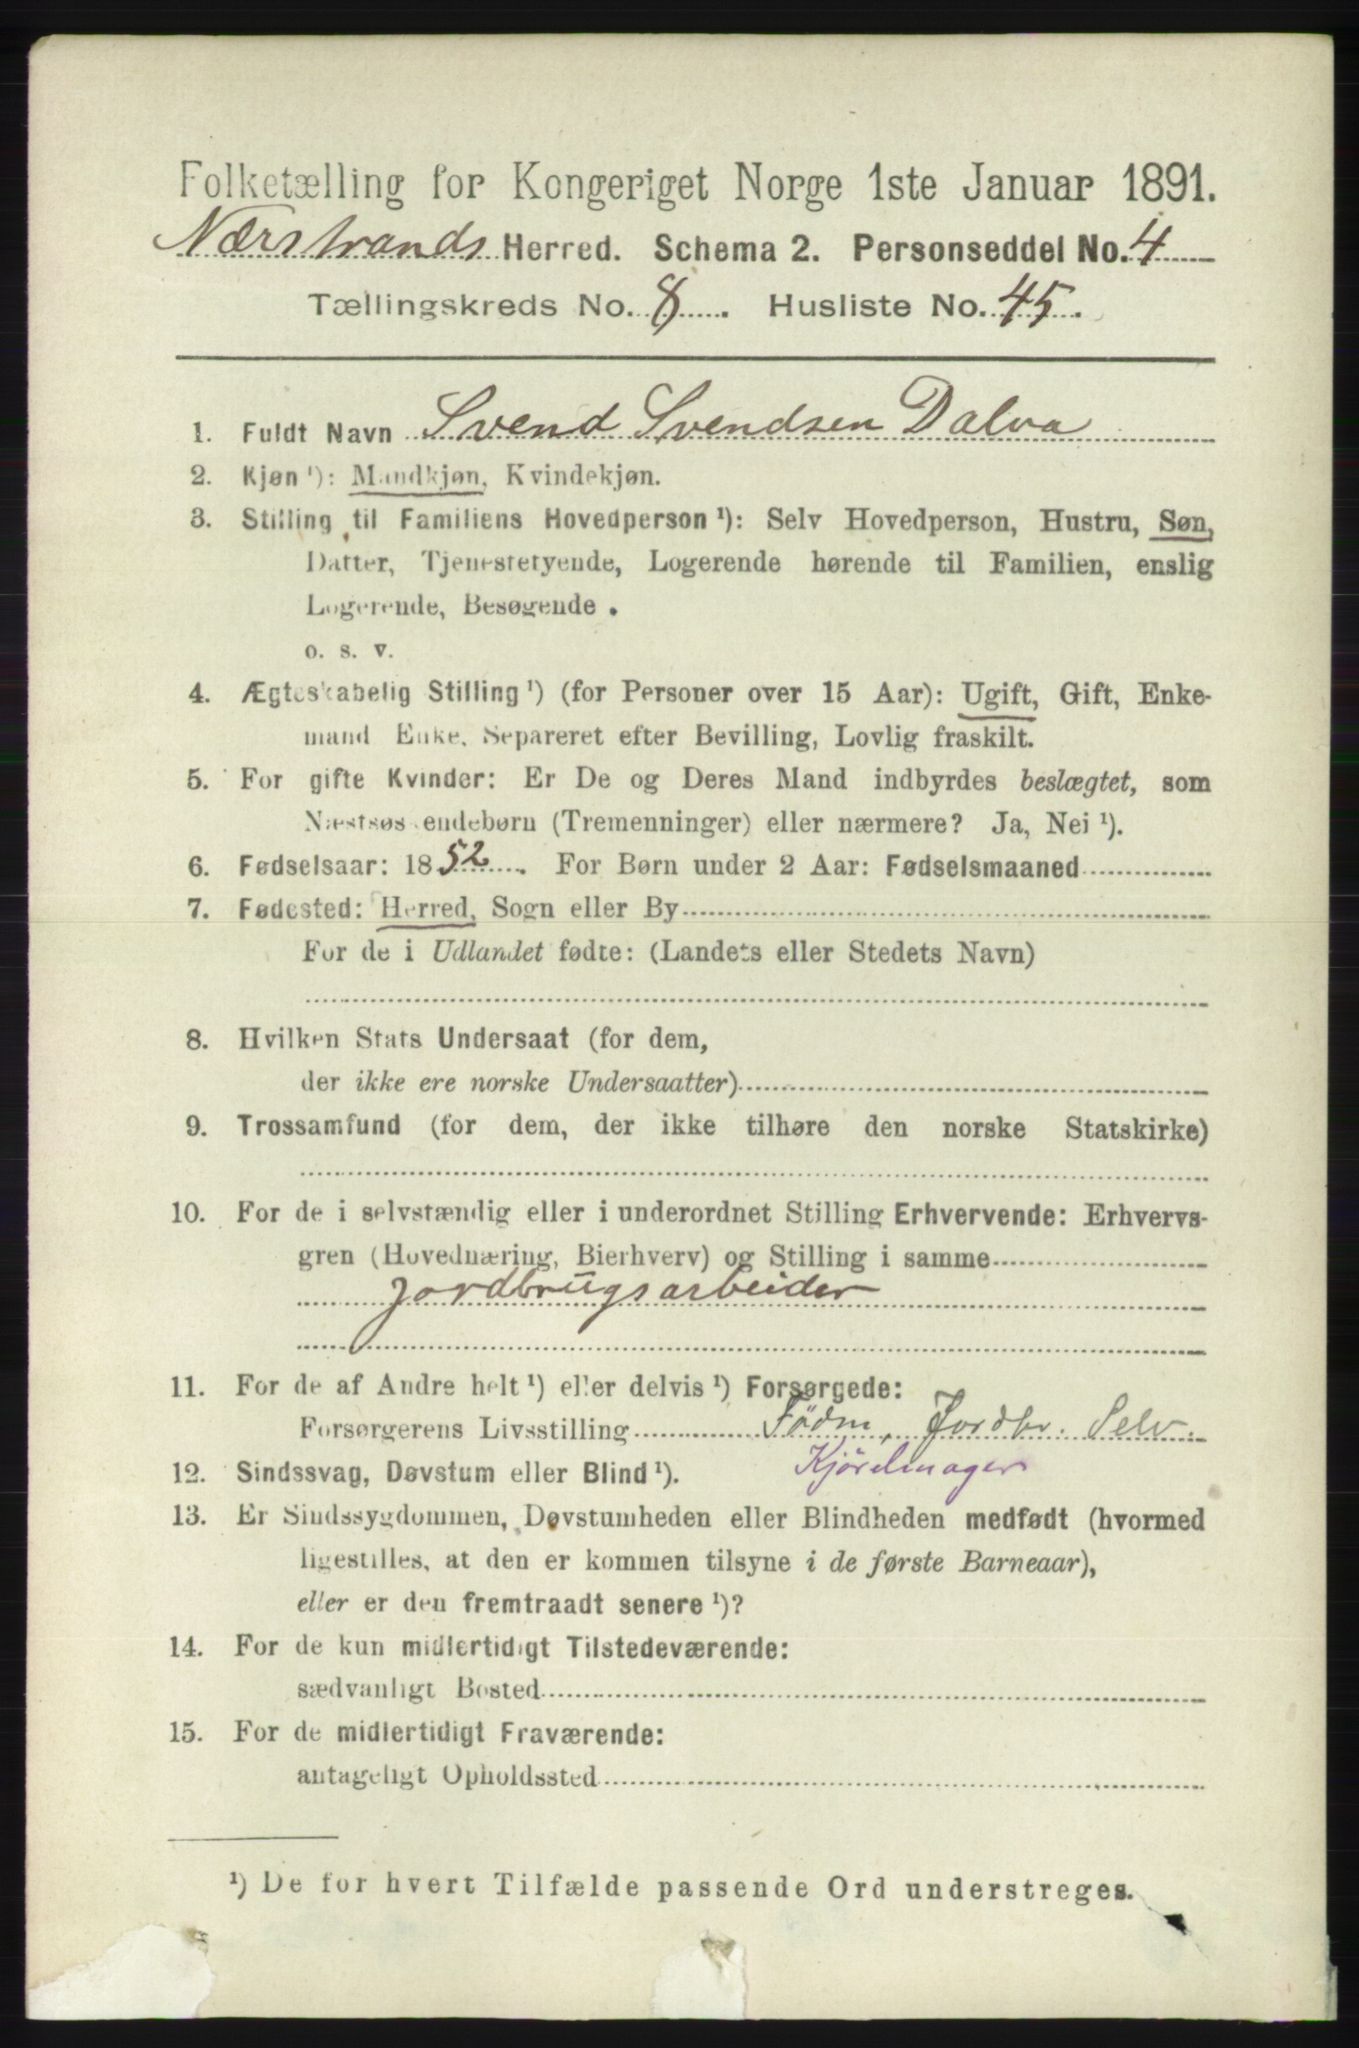 Folketælling for Kongeriget Norge 1ste Januar 1891.
Nærstrands Herred. Schema 2. Personseddel No. 4
Tællingskreds No. 8. Husliste No. 45.
1. Fuldt Navn Svend Svendsen Dalva
2. Kjøn ¹): Mandkjøn, Kvindekjøn.
3. Stilling til Familiens Hovedperson ¹): Selv Hovedperson, Hustru, Søn,
Datter, Tjenestetyende, Logerende hørende til Familien, enslig
Logerende, Besøgende .
o. s. v.
4. Ægteskabelig Stilling ¹) (for Personer over 15 Aar): Ugift, Gift, Enke-
mand Enke, Separeret efter Bevilling, Lovlig fraskilt.
5. For gifte Kvinder: Er De og Deres Mand indbyrdes beslægtet, som
Næstsøskendebørn (Tremenninger) eller nærmere? Ja, Nei ¹).
6. Fødselsaar: 1852. For Børn under 2 Aar: Fødselsmaaned
7. Fødested: Herred, Sogn eller By
For de i Udlandet fødte: (Landets eller Stedets Navn)
8. Hvilken Stats Undersaat (for dem,
der ikke ere norske Undersaatter)
9. Trossamfund (for dem, der ikke tilhøre den norske Statskirke)
10. For de i selvstændig eller i underordnet Stilling Erhvervende: Erhvervs-
gren (Hovednæring, Bierhverv) og Stilling i samme
Jordbrugsarbeider
11. For de af Andre helt ¹) eller delvis ¹) Forsørgede:
Forsørgerens Livsstilling Födm, Jordbr. Selv.
12. Sindssvag, Døvstum eller Blind ¹).
13. Er Sindssygdommen, Døvstumheden eller Blindheden medfødt (hvormed
ligestilles, at den er kommen tilsyne i de første Barneaar),
eller er den fremtraadt senere ¹)?
14. For de kun midlertidigt Tilstedeværende:
sædvanligt Bosted
15. For de midlertidigt Fraværende:
antageligt Opholdssted
¹) De for hvert Tilfælde passende Ord understreges.